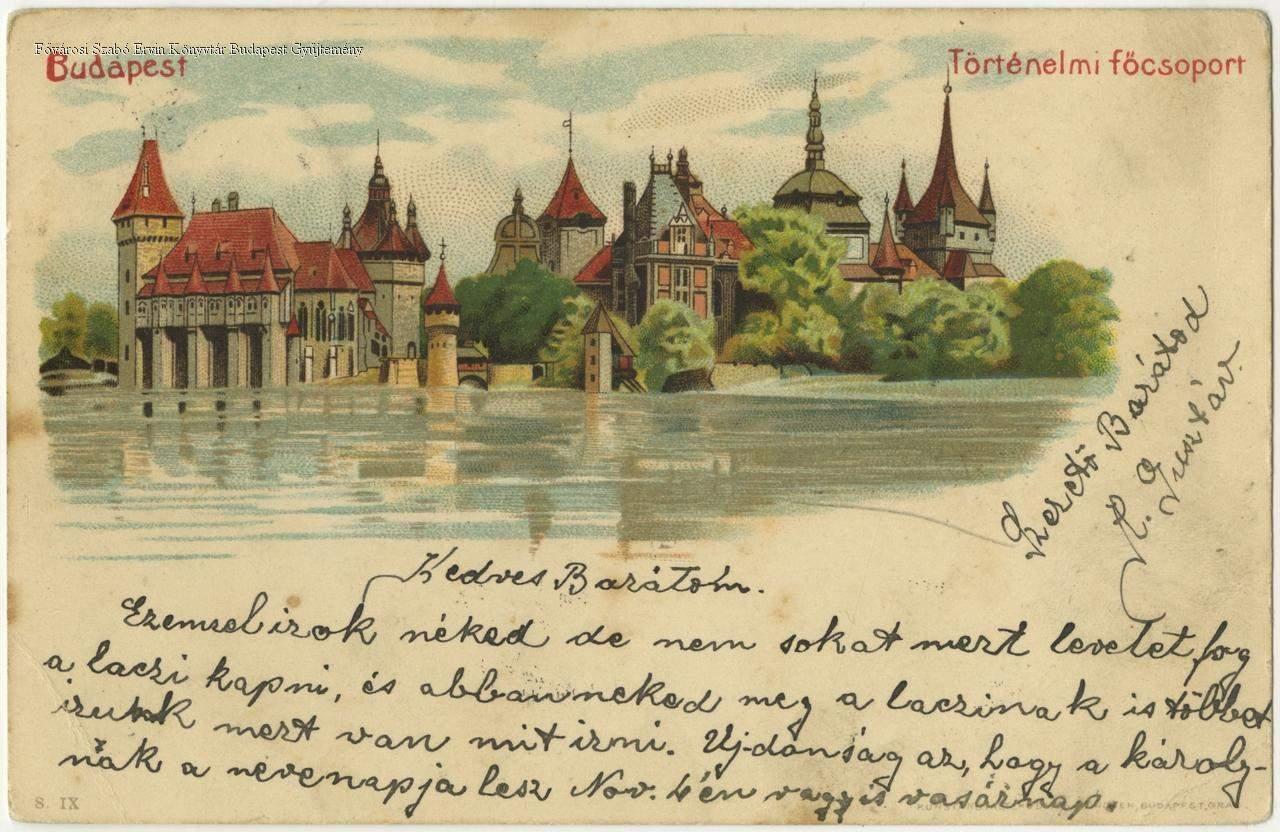 Fővárosi Szabó Ervin Könyvtár Budapest Gyűjtemény
Budapest
Történelmi főcsoport
Szerető Barátod
K. Gusztáv.
Kedves Barátom.
Ezemsel irok néked de nem sokat mert levelet fog
a laczi kapni, és abban neked meg a laczinak is többet
irunk mert van mit irni. Ujdonság az, hogy a károly-
nák a nevenapja lesz Nov. 4 én vagyis vasárnap.
S. IX
BUDAPEST,